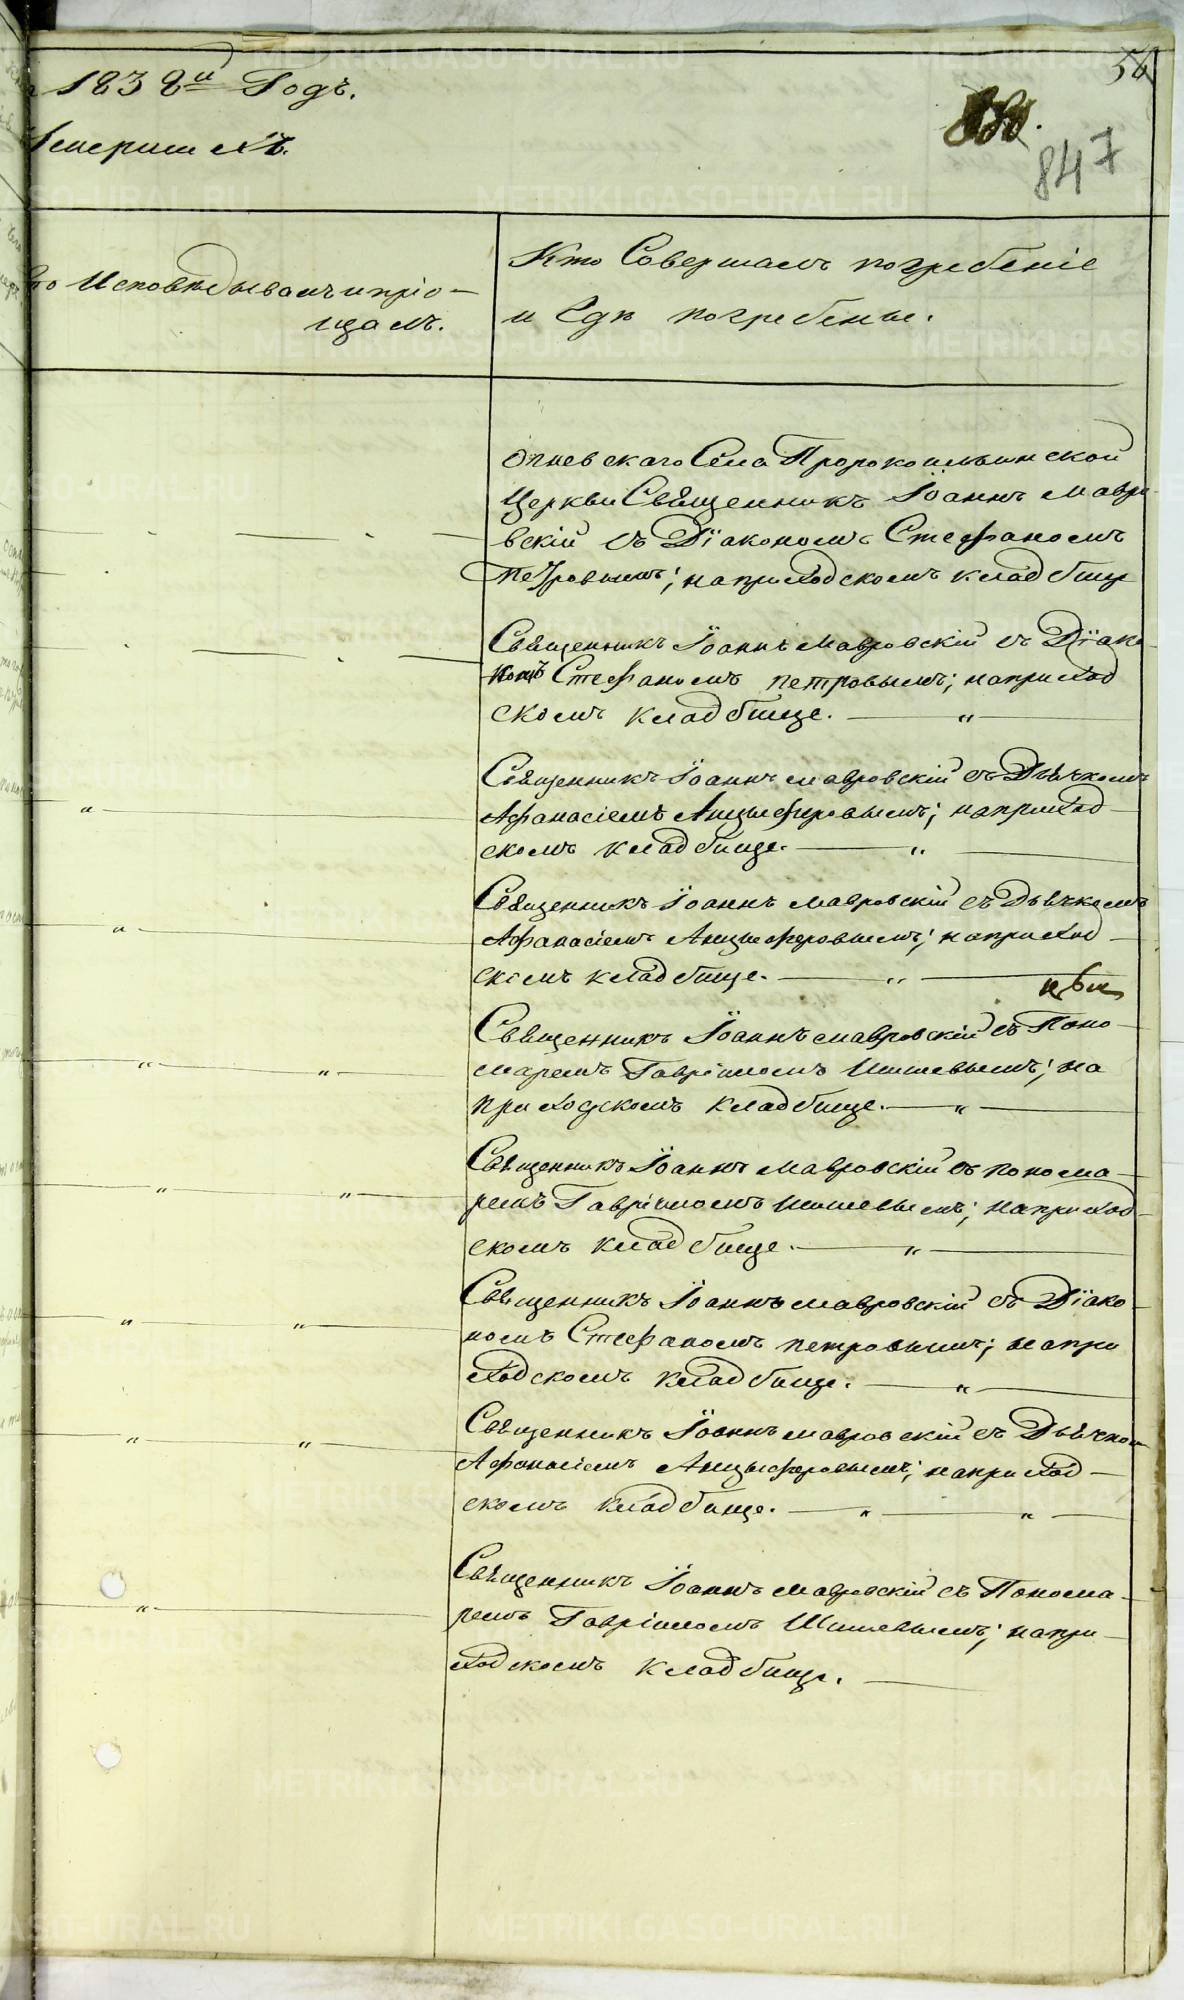 56
1838й Годъ.
умершихъ.
847
Кто Исповѣдывалъ и пріо-
щалъ.
Кто Совершалъ погребеніе
и Гдѣ погребены.
Села Пророкоильинской
Церкви Священникъ Іоаннъ Мавро
вскій съ Діакономъ Стефаномъ
Петровымъ; на приходскомъ кладбище
Священникъ Іоаннъ Мавровскій съ Діако-
номъ Стефаномъ Петровымъ; на приход
скомъ кладбище. — „ —
Священникъ Іоаннъ Мавровскій съ Дьячкомъ
Афанасіемъ Анцыферовымъ; на приход-
скомъ кладбище. — „ —
Священникъ Іоаннъ Мавровскій съ Дьячкомъ
Афанасіемъ Анцыферовымъ; на приход-
скомъ кладбище. — „ —
Священникъ Іоаннъ Мавровскій съ Поно-
маремъ Гавріиломъ Шишевымъ; на
приходскомъ кладбище. — „ —
Священникъ Іоаннъ Мавровскій съ понома-
ремъ Гавріиломъ Шишевымъ; на приход-
скомъ кладбище. — „ —
Священникъ Іоаннъ Мавровскій съ Діако-
номъ Стефаномъ Петровымъ; на при
ходскомъ кладбище. — „ —
Священникъ Іоаннъ Мавровскій съ Дьячком
Афанасіемъ Анцыферовымъ; на приход-
скомъ кладбище. — „ — „ —
Священникъ Іоаннъ Мавровскій съ Понома-
ремъ Гавріиломъ Шишевымъ; на при-
ходскомъ кладбище. —
METRIKI.GASO-URAL.RU